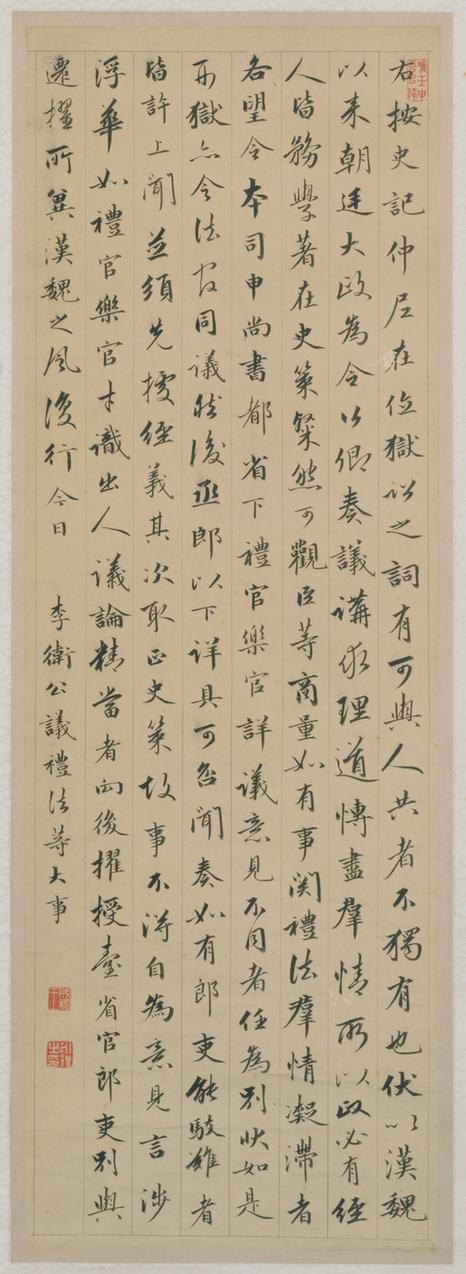 右按史記仲尼在位獄訟之詞有可與人共者不獨有也伏以漢魏
以来朝廷大政為令公卿奏議講求理道博盡羣情所以政必有經
人皆務學著在史策粲然可觀臣等商量如有事関禮法羣情凝滯者
各望令本司申尚書都省下禮官樂官詳議意見不同者任為別狀如是
刑獄亦令法官同議然後丞郎以下详具可否聞奏如有郎吏能駮難者
皆許上聞並須先據經義其次取正史策故事不得自為意見言涉
浮華如禮官樂官才識出人議論精當者向後擢授臺省官郎吏別與
遷擢所冀漢魏之風復行今日
李衛公議禮法等大事